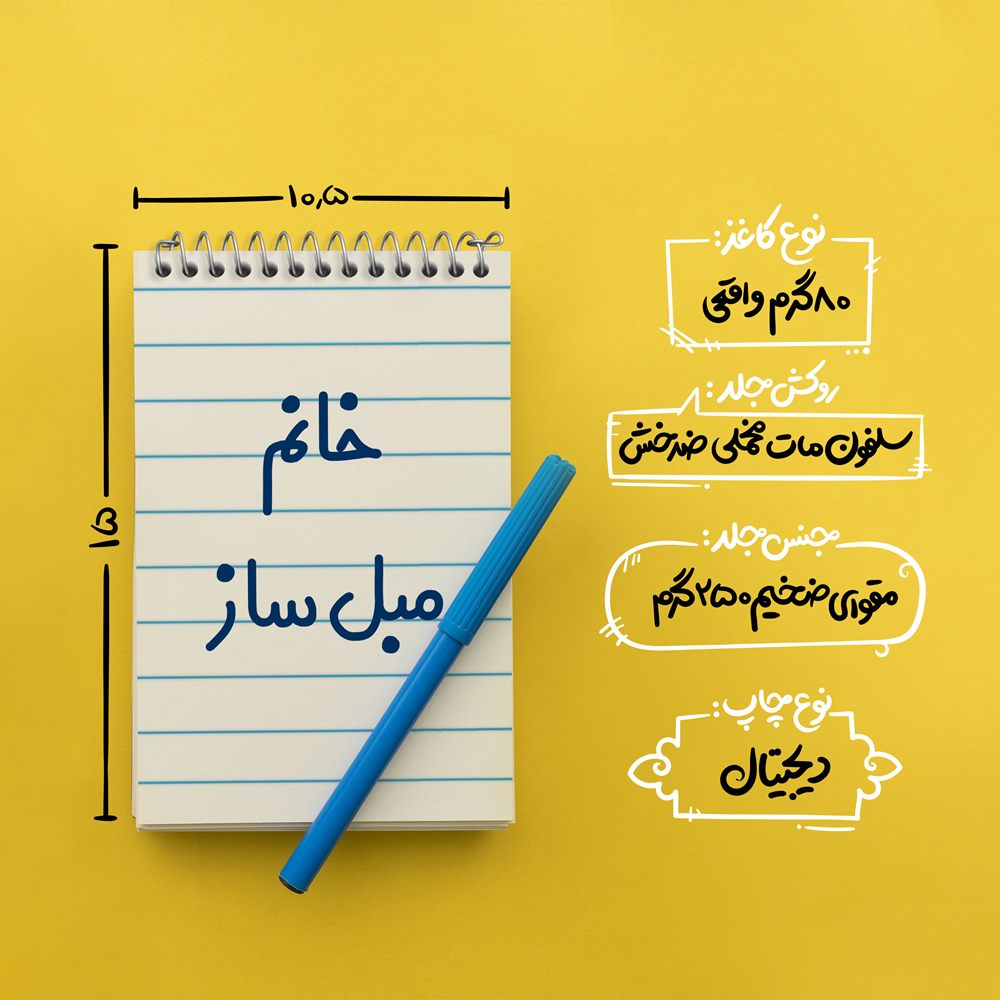 ۱۰٫۵
۱۵
خانم
مبل ساز
نوع کاغذ:
۸۰گرم واقعی
روکش مجلد:
سلفون مات مخملی ضدخش
جنس مجلد:
مقوای ضخیم ۲۵۰گرم
نوع چاپ:
دیجیتال